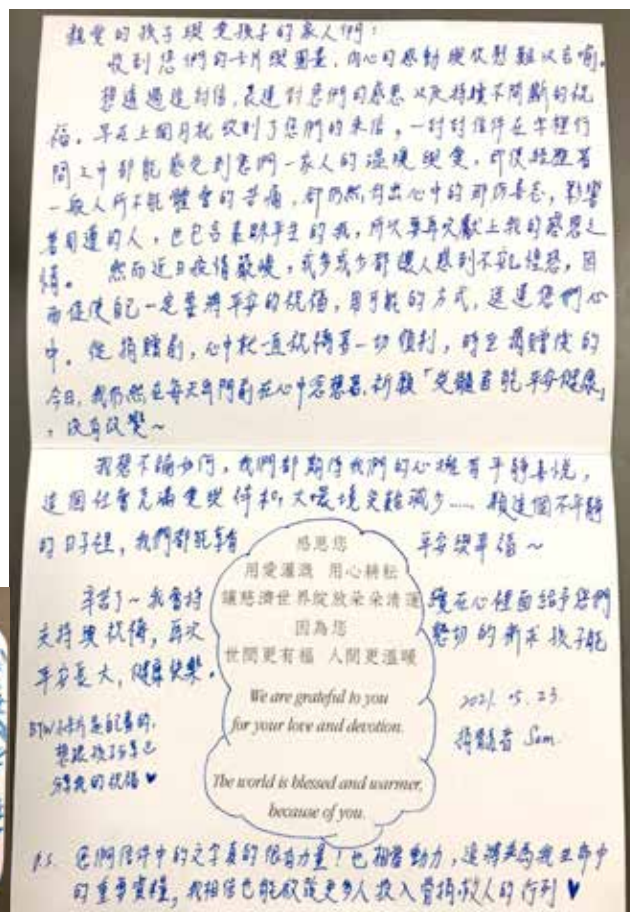 親愛的孩子與愛孩子的家人們：
收到您們的卡片與圖畫，內心的感動與欣慰難以言喻。
想透過這封信，表達對您們的感恩以及持續不間斷的祝
福。早在上個月就收到了您們的來信，一封封信件在字裡行
間之中都能感受到您們一家人的溫暖與愛，即使經歷著
一般人所不能體會的苦痛，卻仍然付出心中的那份善念，影響
著周遭的人，也包含素昧平生的我，所以要再次獻上我的感恩之
情。然而近日疫情嚴峻，或多或少都讓人感到不安惶恐，因
而促使自己一定要將平安的祝福，用可能的方式，送達您們心
中。從捐贈前，心中就一直祝禱著一切順利，時至捐贈後的
今日，我仍然在每天出門前在心中念想著，祈願「受髓者能平安健康」
，沒有改變～
我想不論如何，我們都期待我們的心擁有平靜喜悅，
這個社會充滿愛與祥和，大環境災難減少……願這個不平靜
的日子裡，我們都能享有平安與幸福～
辛苦了～我會持續在心裡面給予您們
支持與祝福，再次懇切的祈求孩子能
平安長大，健康快樂。
2021. 5. 23.
捐髓者 Sam
BTW，卡片是自己畫的，
想跟孩子分享也
分享我的祝福♥
感恩您
用愛灌溉 用心耕耘
讓慈濟世界綻放朵朵清蓮
因為您
世間更有福 人間更溫暖
We are grateful to you
for your love and devotion.
The world is blessed and warmer,
because of you.
P.S. 您們信件中的文字真的很有力量！也相當動力，這將成為我生命中
的重要資糧，我相信也能啟發更多人投入骨捐救人的行列♥